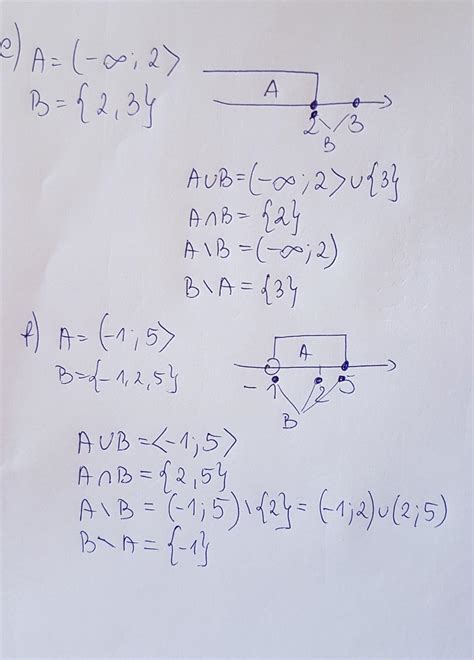 e) A = (-∞; 2>
B = {2, 3}
A
2 3
B
A∪B = (-∞; 2> ∪ {3}
A∩B = {2}
A\B = (-∞; 2)
B\A = {3}
f) A = (-1; 5>
B = {-1, 2, 5}
A
-1 2 5
B
A∪B = <-1; 5>
A∩B = {2, 5}
A\B = (-1; 5)\{2} = (-1; 2)∪(2; 5)
B\A = {-1}